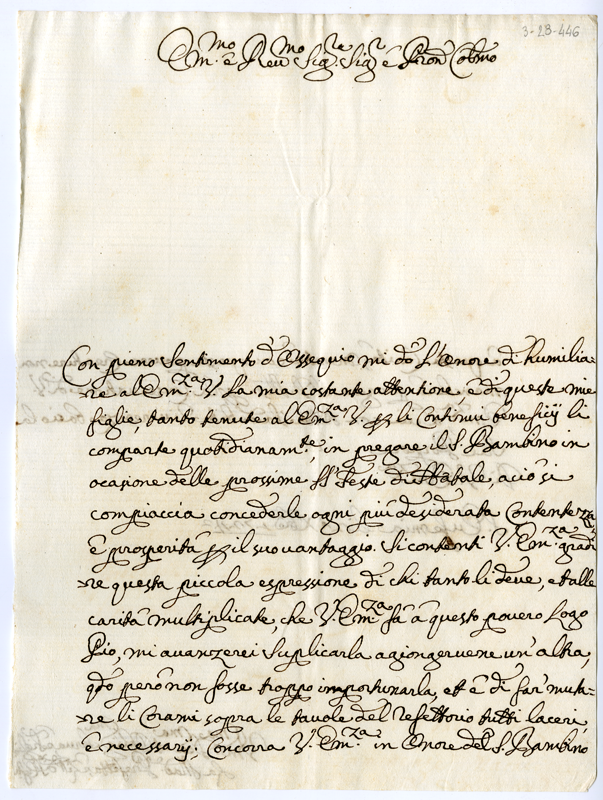 3-28-446
Em.mo e Reu.mo Sig.re Sig.r e Pron Colmo
Con pieno sentimento d'Ossequio mi do L'Onore di humilia=
re al Em.za V. La mia costante attentione e di queste mie
figlie, tanto tenute al Em.za V. per li Continui beneficij li
comparte quotidianam.te, in pregare il S. Bambino in
ocasione delle prossime SS. Feste di Natale, acio si
compiaccia concederle ogni più desiderata Contentezza
e prosperità per il suo vantaggio. Si contenti V. Em.za gradi
re questa piccola espressione di chi tanto li deve, et alle
carità multiplicate, che V. Em.za fa à questo povero Logo
Pio, mi avanzerei suplicarla agiongervene un' altra,
qdo però non fosse troppo importunarla, et è di far muta=
re li Corami sopra le tavole del Refettorio tutti laceri,
e necessarij; Concorra V. Em.za in Onore del S. Bambino